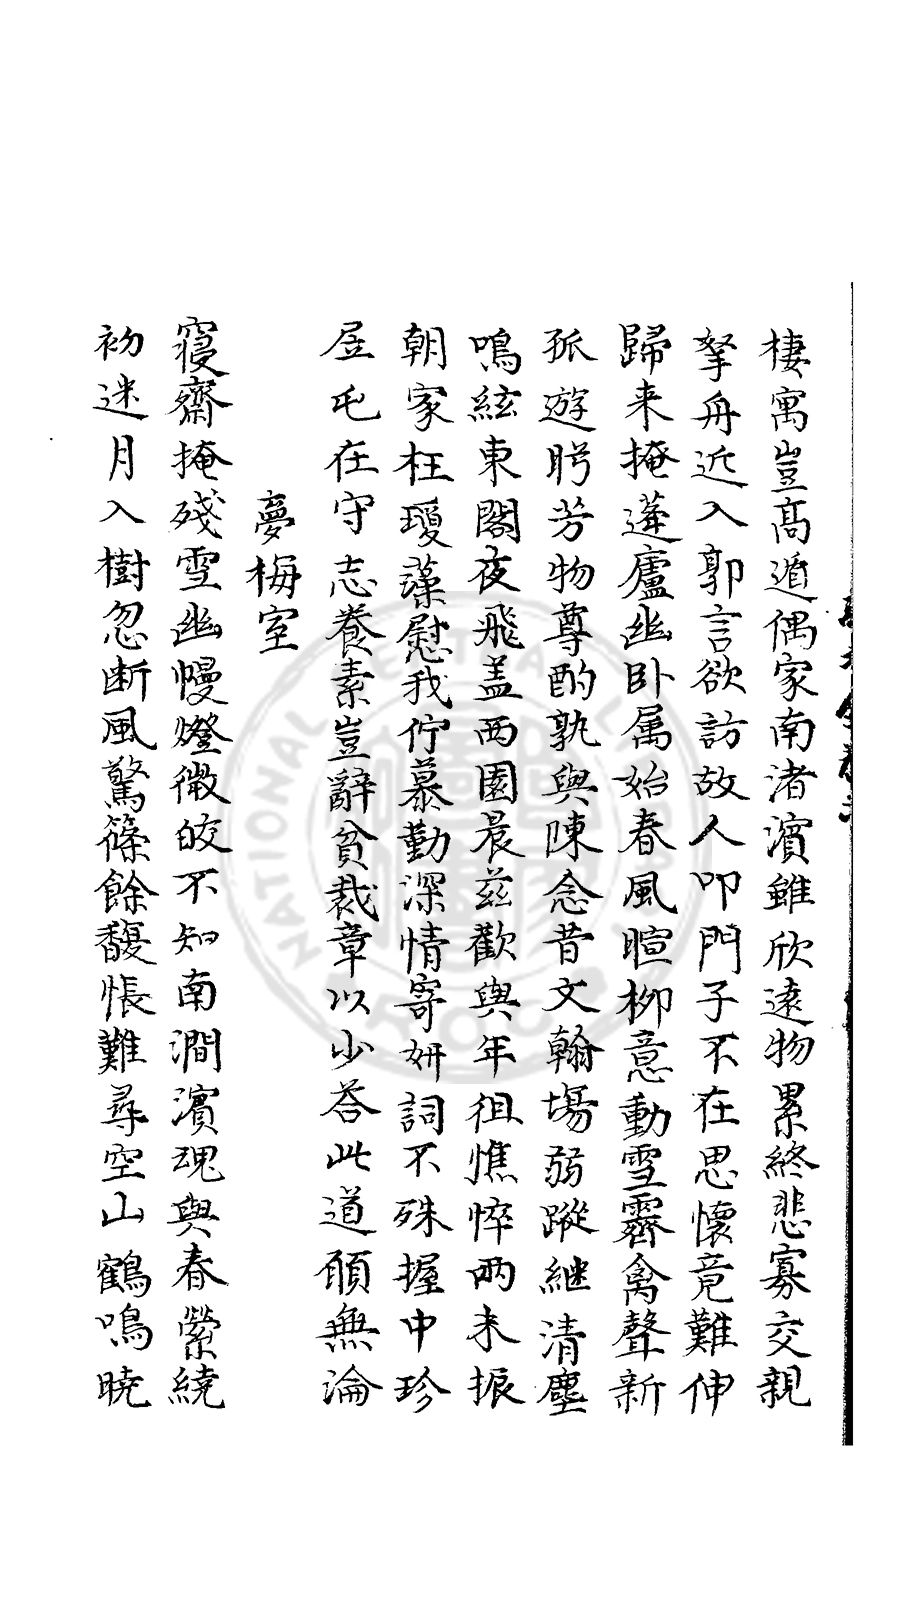 棲寓豈髙遁偶家南渚濱雖欣逺物累終悲寡交親
拏舟近入郭言欲訪故人叩門子不在思懷竟難伸
歸来掩蓬廬幽卧属始春風暄柳意動雪霽禽聲新
孤遊眄芳物尊酌孰與陳念昔文翰塲弱蹤継清塵
鳴絃東閣夜飛盖西園晨兹歡與年徂憔悴兩未振
朝家枉瓊藻慰我佇慕勤深情寄妍詞不殊握中珍
屋屯在守志養素豈辭貧裁章以少荅此道願無淪
夢梅室
寢齋掩殘雪幽幔燈微皎不知南澗濱魂與春縈繞
初迷月入樹忽断風驚篠餘馥悵難尋空山鶴鳴曉
NATIONAL CENTRAL LIBRARY
R.O.C.